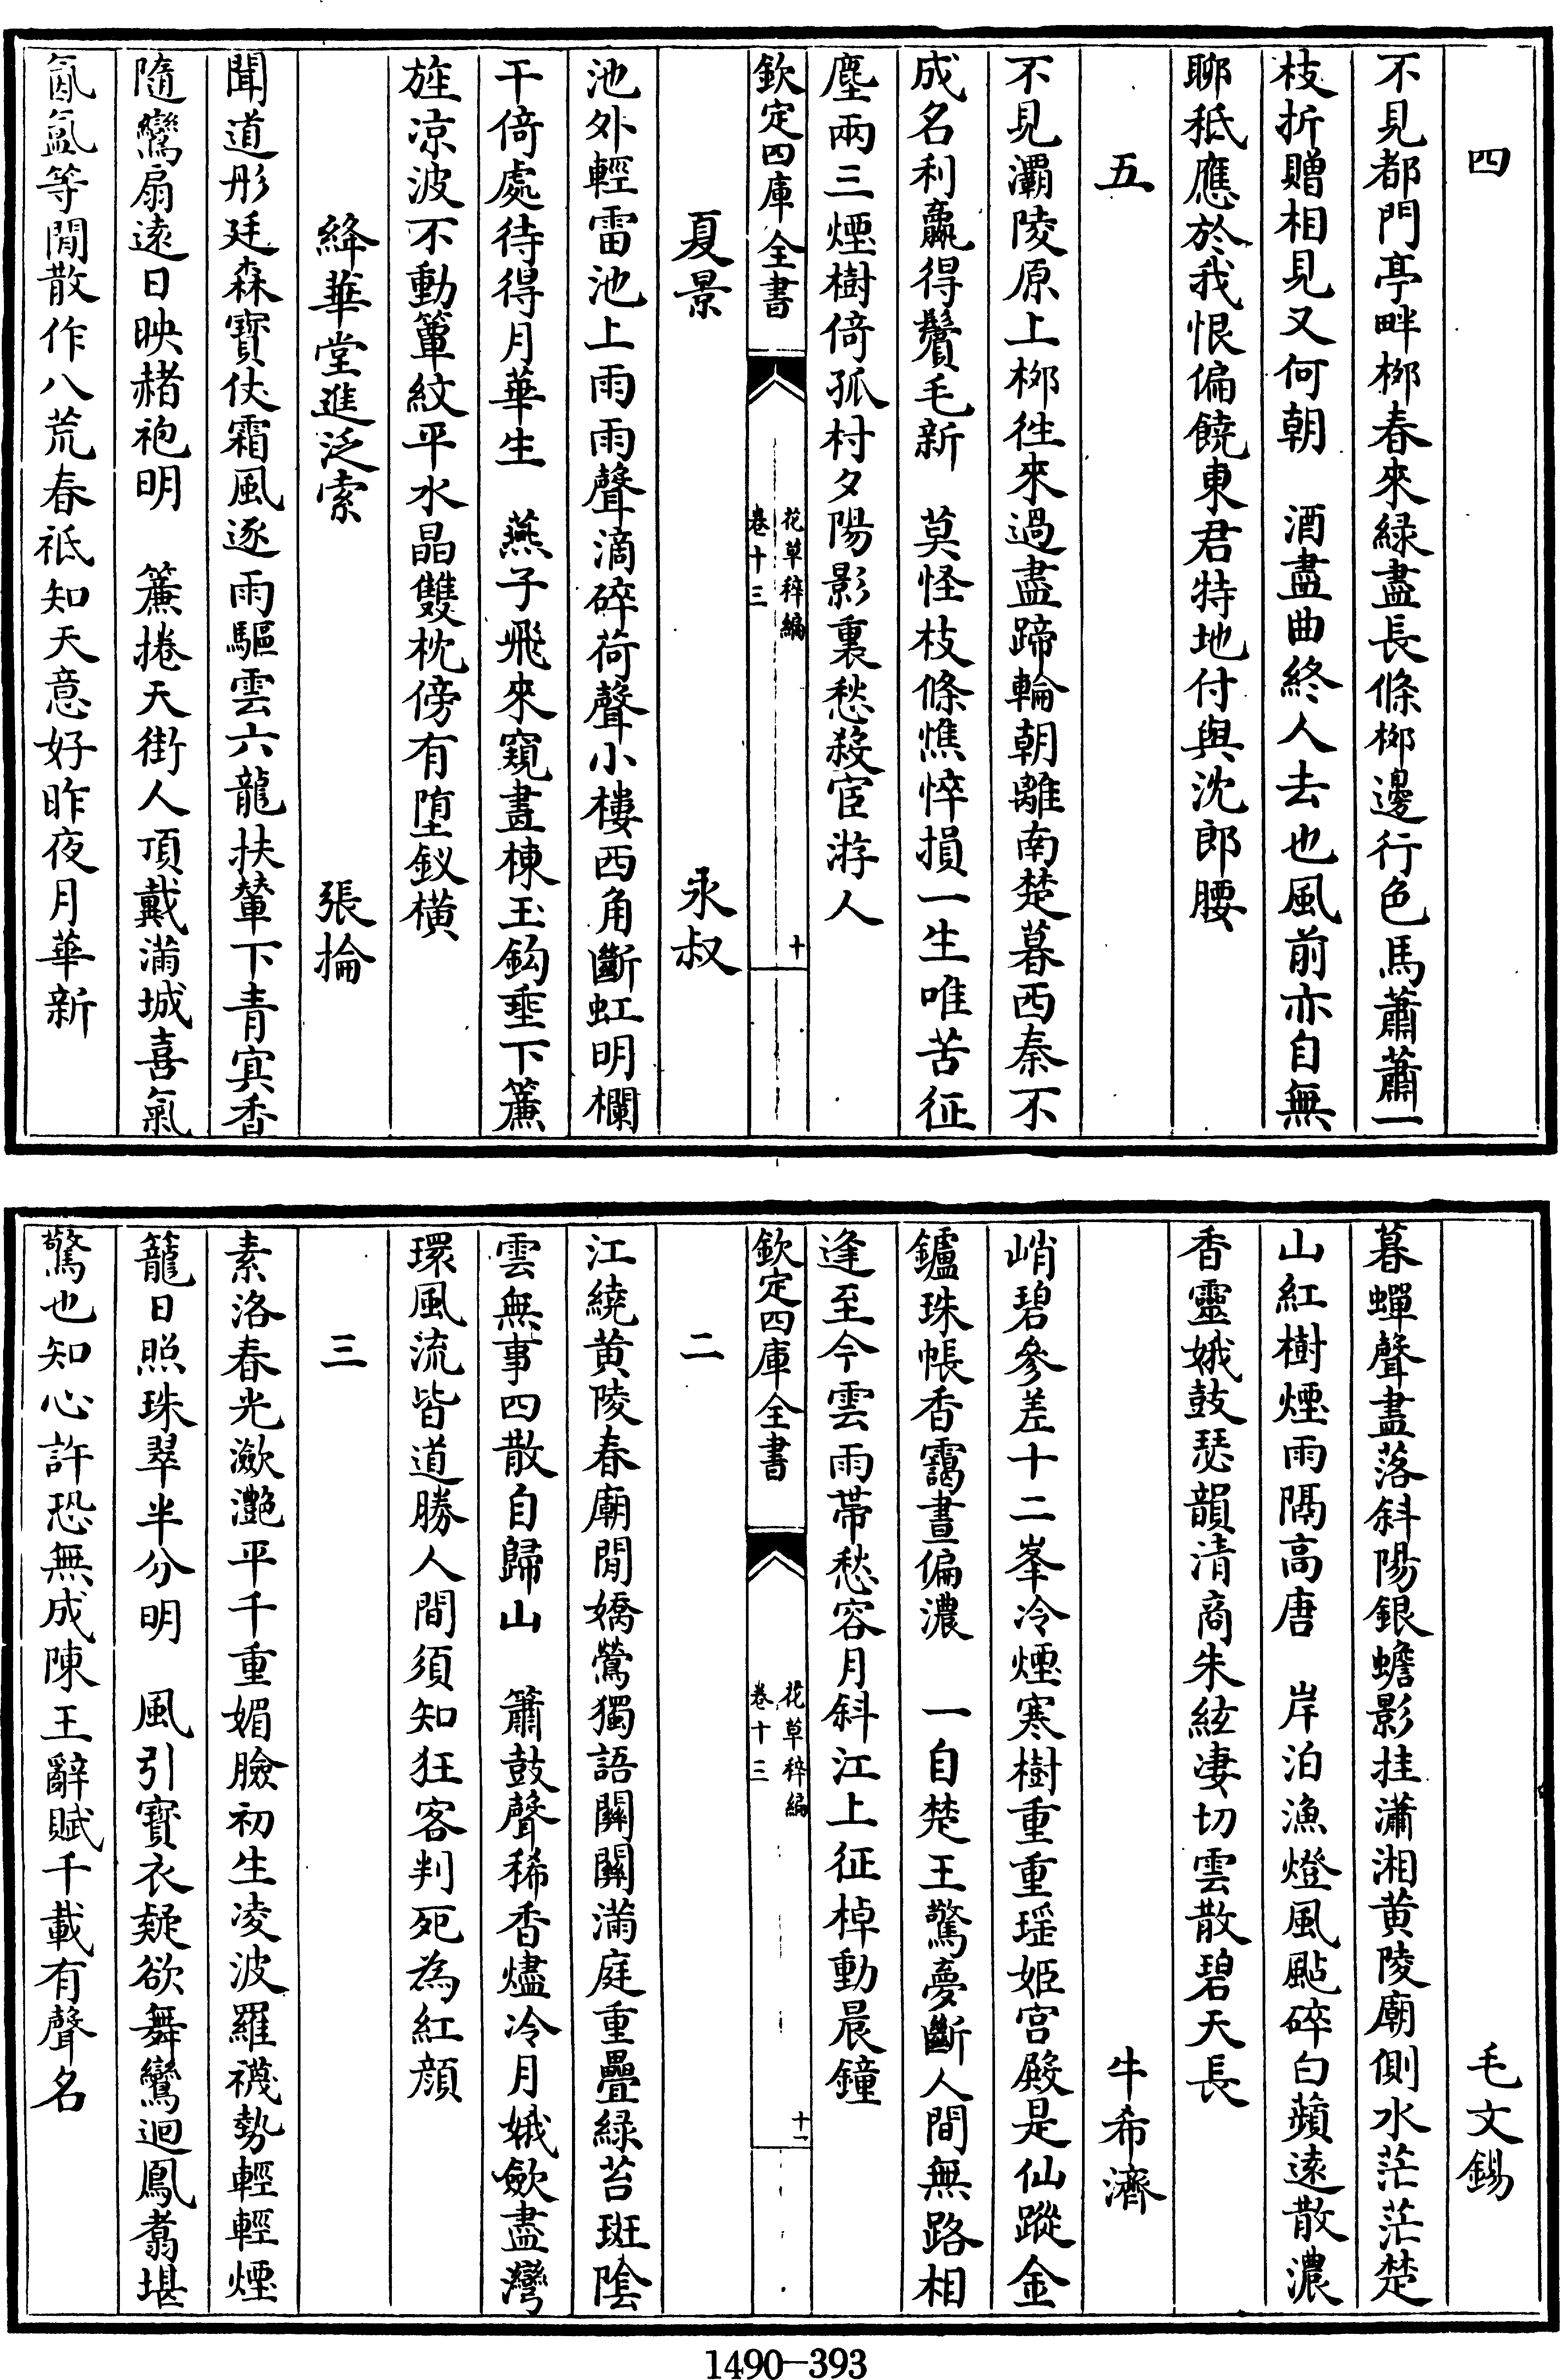 四
不見都門亭畔栁春來緑盡長條栁邊行色馬蕭蕭一
枝折贈相見又何朝　酒盡曲終人去也風前亦自無
聊秪應於我恨偏饒東君特地付與沈郎腰
五
不見灞陵原上栁徃來過盡蹄輪朝離南楚暮西秦不
成名利贏得鬢毛新　莫怪枝條憔悴損一生唯苦征
塵兩三煙樹倚孤村夕陽影裏愁殺宦游人
欽定四庫全書
花草稡編
卷十三
十
夏景　永叔
池外輕雷池上雨雨聲滴碎荷聲小樓西角斷虹明欄
干倚處待得月華生　燕子飛來窺畫棟玉鈎垂下簾
旌凉波不動簟紋平水晶雙枕傍有堕釵横
絳華堂進泛索　張掄
聞道彤廷森寳仗霜風逐雨驅雲六龍扶輦下青㝠香
隨鸞扇逺日映赭袍明　簾捲天街人頂戴滿城喜氣
氤氲等閒散作八荒春祇知天意好昨夜月華新
毛文錫
暮蟬聲盡落斜陽銀蟾影挂瀟湘黄陵廟側水茫茫楚
山紅樹煙雨隔高唐　岸泊漁燈風颭碎白蘋逺散濃
香靈娥鼓瑟韻清商朱絃凄切雲散碧天長
牛希濟
峭碧參差十二峯冷煙寒樹重重瑶姬宫殿是仙蹤金
鑪珠帳香靄晝偏濃　一自楚王驚夢斷人間無路相
逢至今雲雨帶愁容月斜江上征棹動晨鐘
欽定四庫全書
花草稡編
卷十三
十一
二
江繞黄陵春廟閒嬌鶯獨語關關滿庭重疊緑苔斑隂
雲無事四散自歸山　簫鼓聲稀香燼冷月娥歛盡灣
環風流皆道勝人間須知狂客判死為紅顔
三
素洛春光瀲灔平千重媚臉初生凌波羅襪勢輕輕煙
籠日照珠翠半分明　風引寳衣疑欲舞鸞迴鳳翥堪
驚也知心許恐無成陳王辭賦千載有聲名
1490—393